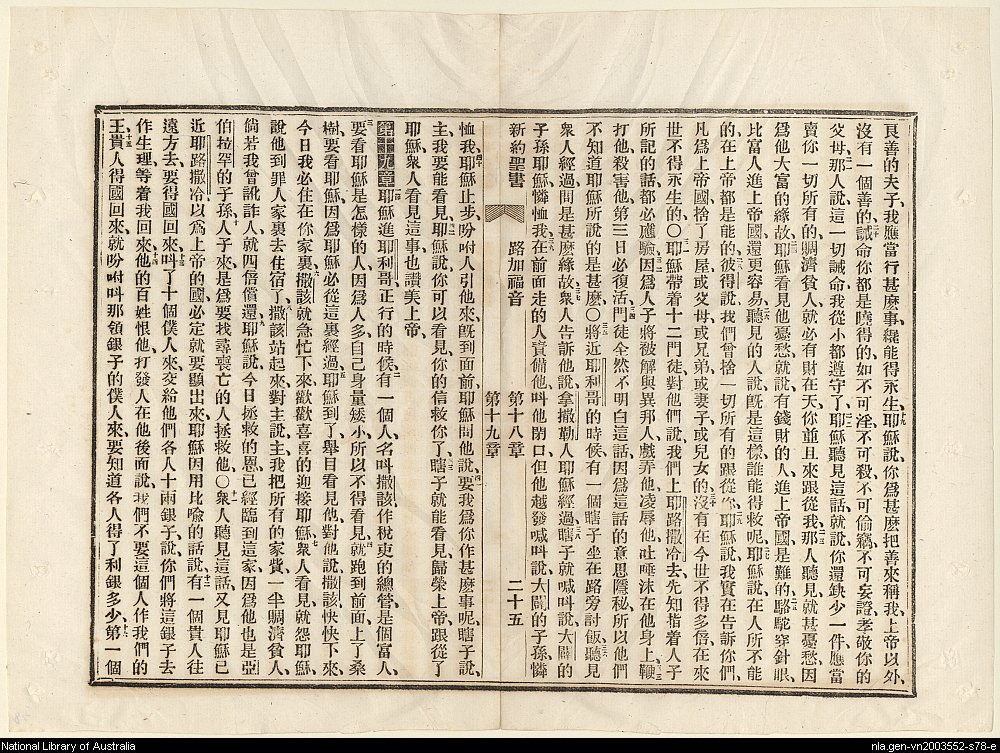 良善的夫子我應當行甚麼事纔能得永生耶穌說你爲甚麼把善來稱我上帝以外、
沒有一個善的誡命你都是曉得的如不可淫不可殺不可偷竊不可妄證孝敬你的
父母那人說這一切誡命我從小都遵守了耶穌聽見這話就說你還缺少一件應當
賣你一切所有的賙濟貧人就必有財在天你並且來跟從我那人聽見就甚憂愁因
爲他大富的緣故耶穌看見他憂愁就說有錢財的人進上帝國是難的駱駝穿針眼、
比富人進上帝國還更容易聽見的人說旣是這樣誰能得救呢耶穌說在人所不能
的在上帝都是能的彼得說我們曾捨一切所有的跟從你耶穌說我實在告訴你們、
凡爲上帝國捨了房屋或父母或兄弟或妻子或兒女的沒有在今世不得多倍在來
世不得永生的〇耶穌帶着十二門徒對他們說我們上耶路撒冷去先知指着人子
所記的話都必應驗因爲人子將被解與異邦人戲弄他凌辱他吐唾沫在他身上鞭
打他殺害他第三日必復活門徒全然不明白這話因爲這話的意思隱秘所以他們
不知道耶穌所說的是甚麼〇將近耶利哥的時候有一個瞎子坐在路旁討飯聽見
衆人經過問是甚麽緣故衆人告訴他說拿撒勒人耶穌經過瞎子就喊叫說大闢的
子孫耶穌憐恤我在前面走的人責備他叫他閉口但他越發喊叫說大闢的子孫憐
新約聖書 路加福音 第十八章 第十九章 二十五
恤我耶穌止步吩咐人引他來旣到面前耶穌問他說要我爲你作甚麽事呢瞎子說、
主我要能看見耶穌說你可以看見你的信救你了瞎子就能看見歸榮上帝跟從了
耶穌衆人看見這事也讚美上帝
第十九章 耶穌進耶利哥正行的時候有一個人名叫撒該作稅吏的總管是個富人、
要看耶穌是怎樣的人因爲人多自己身量矮小所以不得看見就跑到前面上了桑
樹要看耶穌因爲耶穌必從這裏經過耶穌到了舉目看見他對他說撒該快快下來
今日我必住在你家裏撒該就急忙下來歡歡喜喜的迎接耶穌衆人看見就怨耶穌
說他到罪人家裏去住宿了撒該站起來對主說主我把所有的家貲一半賙濟貧人、
倘若我曾訛詐人就四倍償還耶穌說今日拯救的恩已經臨到這家因爲他也是亞
伯拉罕的子孫人子來是爲要找尋喪亡的人拯救他〇衆人聽見這話又見耶穌已
近耶路撒冷以爲上帝的國必定就要顯出來耶穌因用比喩的話說有一個貴人往
遠方去要得國回來叫了十個僕人來交給他們各人十兩銀子說你們將這銀子去
作生理等着我回來他的百姓恨他打發人在他後面說我們不要這個人作我們的
王貴人得國回來就吩咐叫那領銀子的僕人來要知道各人得了利銀多少第一個
National Library of Australia
nla.gen-vn2003552-s78-e